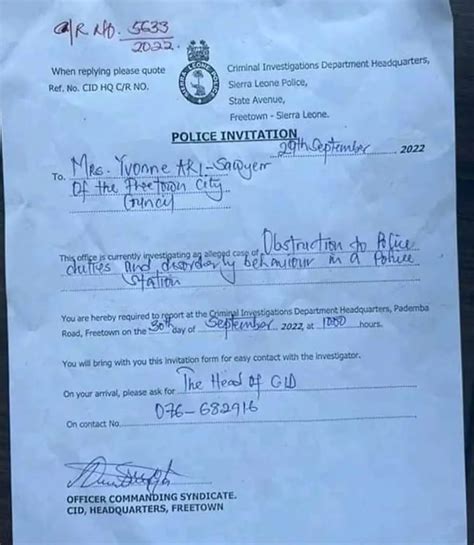 C/R NO. 5633
2022.
When replying please quote
Ref. No. CID HQ C/R NO.
SIERRA LEONE POLICE
Criminal Investigations Department Headquarters,
Sierra Leone Police,
State Avenue,
Freetown - Sierra Leone.
POLICE INVITATION
29th September 2022
To. Mrs. Yvonne AKI-Sawyerr
Of the Freetown City
Council
This office is currently investigating an alleged case of Obstruction to Police
duties and disorderly behaviour in a Police
Station
You are hereby required to report at the Criminal Investigations Department Headquarters, Pademba
Road, Freetown on the 30th day of September 2022, at 1000 hours.
You will bring with you this invitation form for easy contact with the investigator.
On your arrival, please ask for The Head of CID
On contact No. 076-682916
OFFICER COMMANDING SYNDICATE.
CID, HEADQUARTERS, FREETOWN